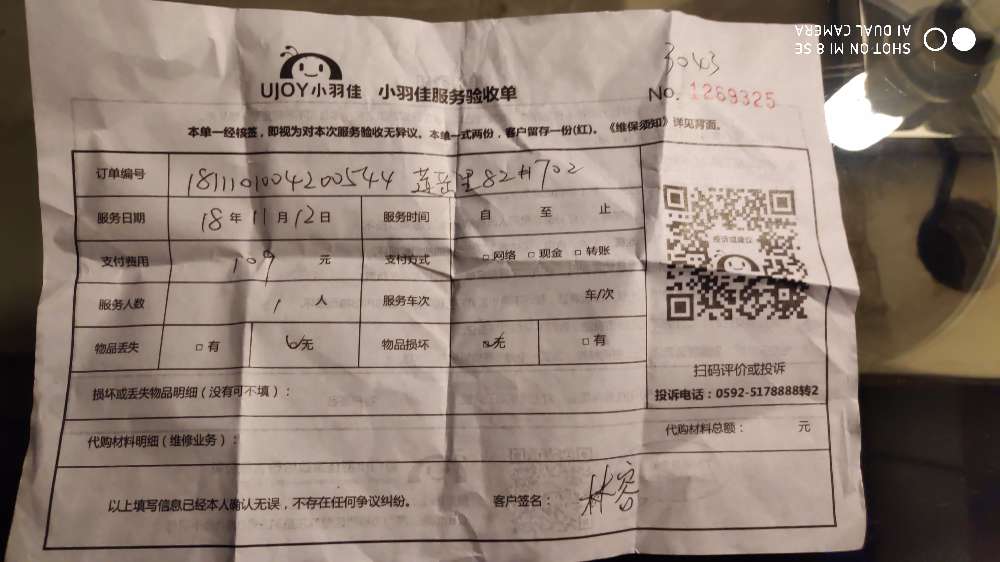 SHOT ON MI 8 SE
AI DUAL CAMERA
3043
UJOY小羽佳 小羽佳服务验收单
NO. 1269325
本单一经核签，即视为对本次服务验收无异议。本单一式两份，客户留存一份(红)。《维保须知》详见背面。
订单编号 181110104200544 莲岳里82#702
服务日期 18年11月12日 服务时间 自 至 止
支付费用 109 元 支付方式 □网络 □现金 □转账
服务人数 1 人 服务车次 车/次
物品丢失 □有 无 物品损坏 无 □有
投诉或建议
扫码评价或投诉
投诉电话：0592-5178888转2
损坏或丢失物品明细（没有可不填）：
代购材料明细（维修业务）： 代购材料总额： 元
以上填写信息已经本人确认无误，不存在任何争议纠纷。 客户签名： 林容